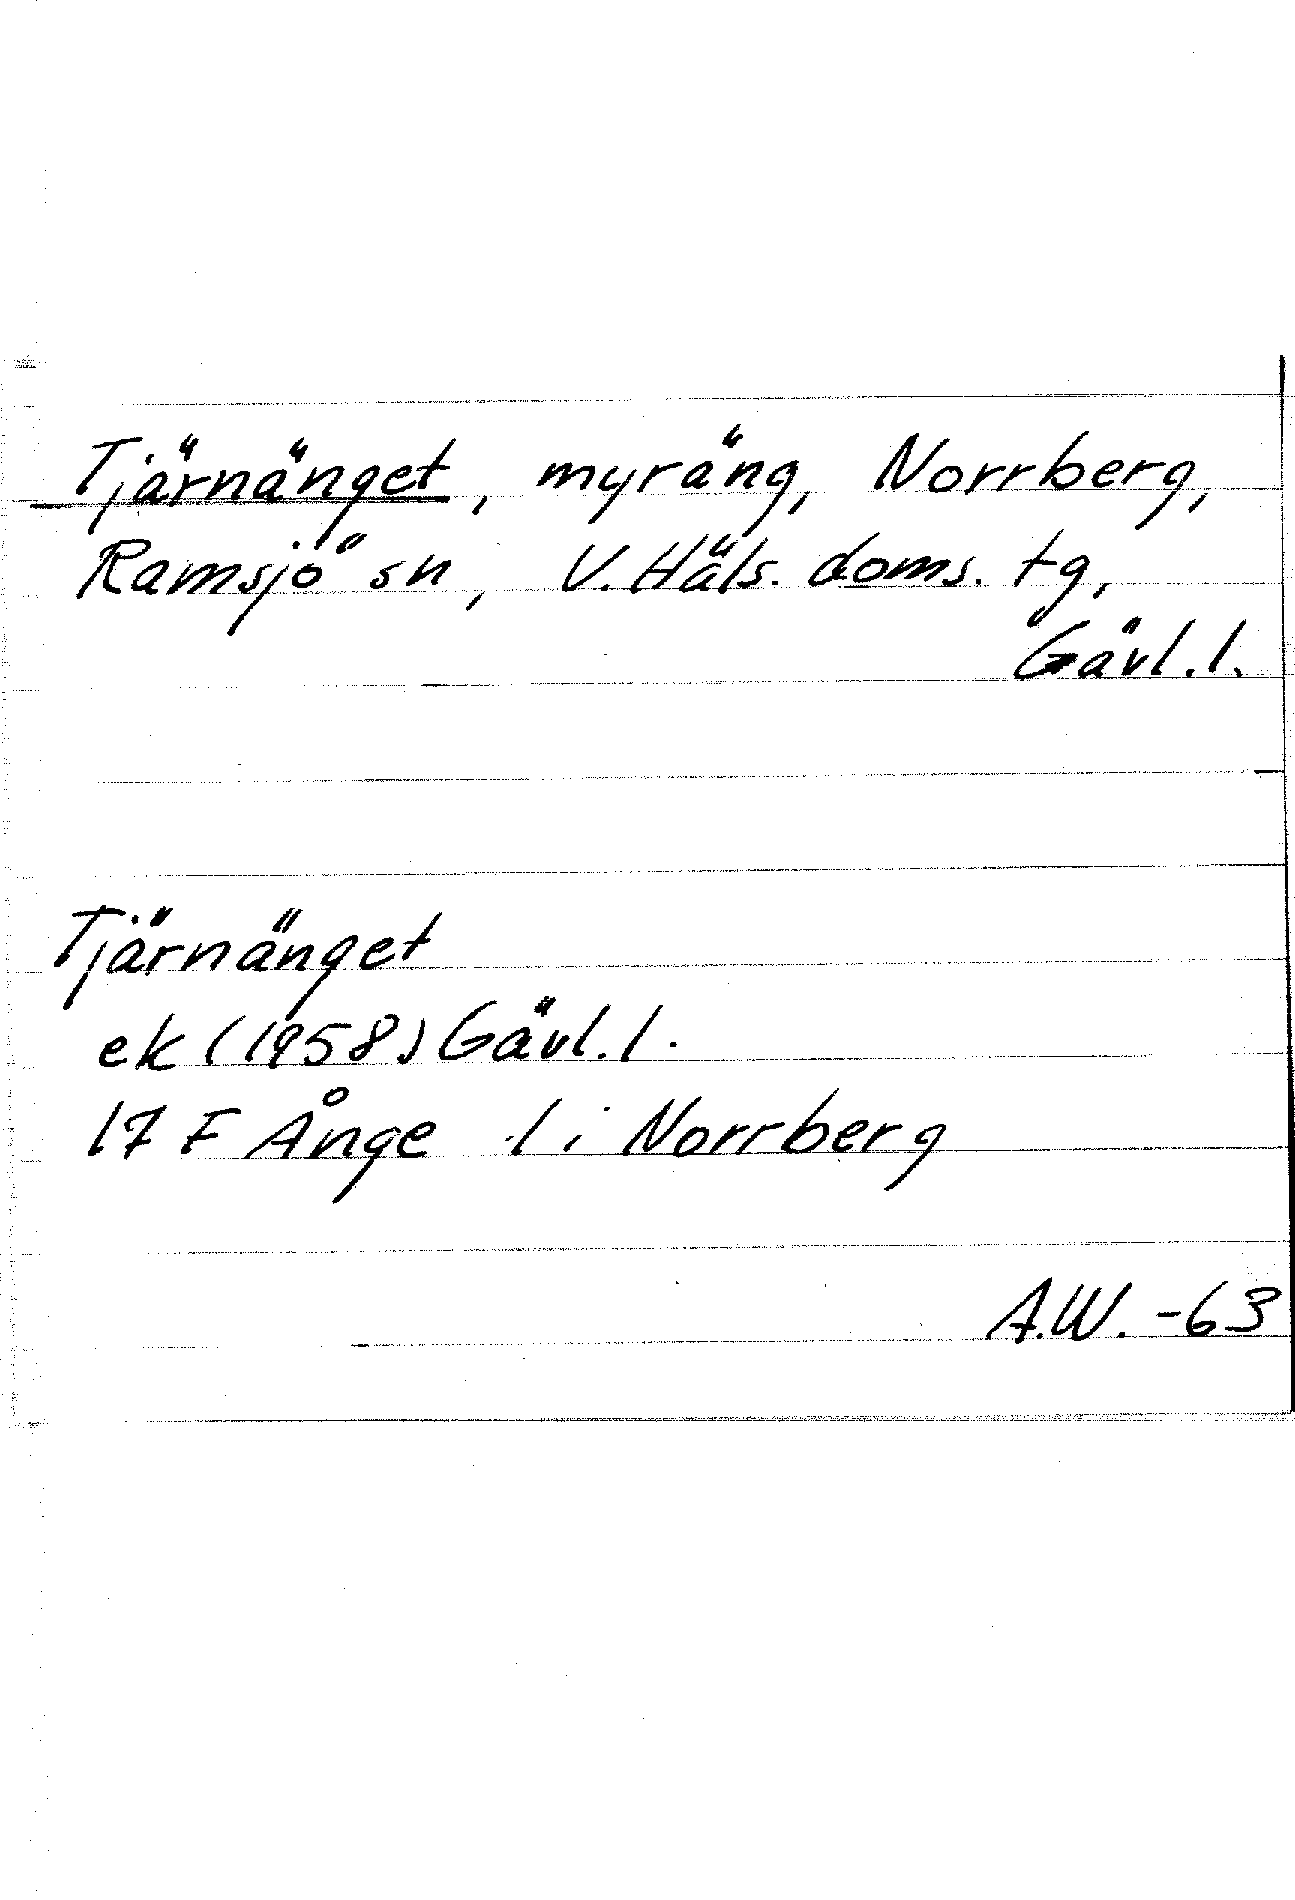 Tjärnänget, myräng, Norrberg,
Ramsjö sn, V. Häls. doms. tg,
Gävl. l.
Tjärnänget
ek (1958) Gävl. l.
17 F Ånge l i Norrberg
A.W. -63